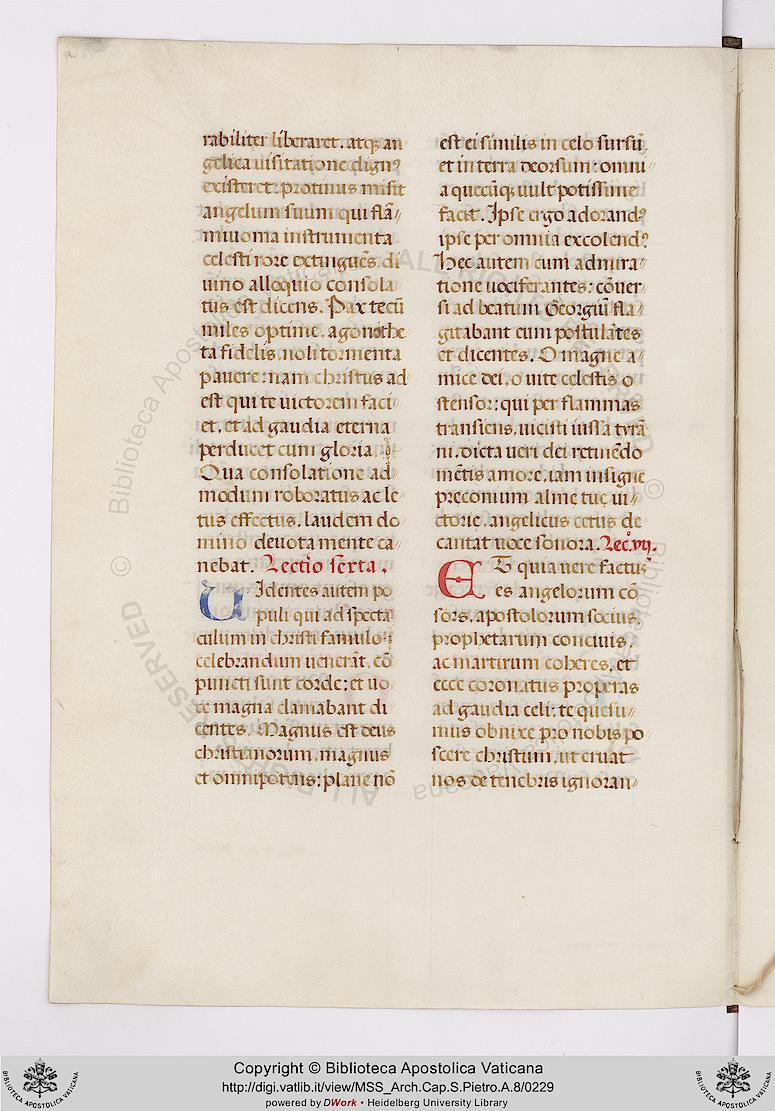 rabiliter liberaret. atqꝫ an
gelica uisitatione dignꝰ
existeret: protinus misit
angelum suum qui flā〃
miuoma instrumenta
celesti rore extinguēs. di
uino alloquio consola
tus est dicens. Pax tecū
miles optime. agonithe
ta fidelis. noli tormenta
pauere: nam christus ad
est qui te uictorem faci
et. et ad gaudia eterna
perducet cum gloria.
Qua consolatione ad
modum roboratus ac le
tus effectus. laudem do
mino deuota mente ca
nebat. Lectio sexta.
UIdentes autem po
puli qui ad specta
culum in christi famulo
celebrandum uenerāt. cō
puncti sunt corde: et uo
ce magna clamabant di
centes. Magnus est deus
christianorum. magnus
et omnipotens: plane nō
est ei similis in celo sursū.
et in terra deorsum: omni〃
a quecūqꝫ uult potissime
facit. Ipse ergo adorandꝰ
ipse per omnia excolendꝰ
Hec autem cum admira〃
tione uociferantes: cōuer〃
si ad beatum Georgiū fla〃
gitabant eum postulātes
et dicentes. O magne a〃
mice dei. o uite celestis o
stensor: qui per flammas
transiens. uicisti iussa tyrā
ni. dicta ueri dei retinēdo
mētis amore. iam insigne
preconium alme tue ui〃
ctorie. angelicus cetus de
cantat uoce sonora. Lec. vij.
ET quia uere factus
es angelorum cō
sors. apostolorum socius.
prophetarum conciuis.
ac martirum coheres. et
ecce coronatus properas
ad gaudia celi: te quesu〃
mus obnixe pro nobis po
scere christum. ut eruat
nos de tenebris ignoran〃
© Biblioteca Apostolica Vaticana ALL RIGHTS RESERVED
Copyright © Biblioteca Apostolica Vaticana
http://digi.vatlib.it/view/MSS_Arch.Cap.S.Pietro.A.8/0229
powered by DWork • Heidelberg University Library
BIBLIOTECA APOSTOLICA VATICANA
BIBLIOTECA APOSTOLICA VATICANA